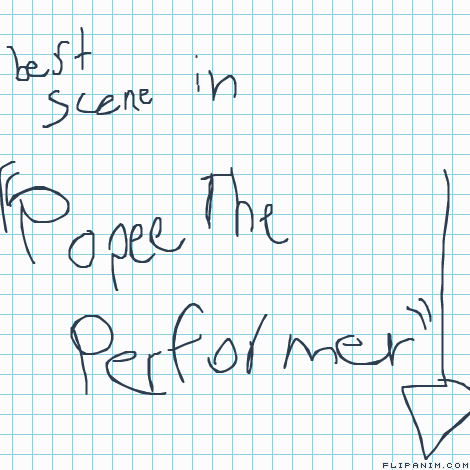 best
scene in
"Popee The
Performer"
FLIPANIM.COM